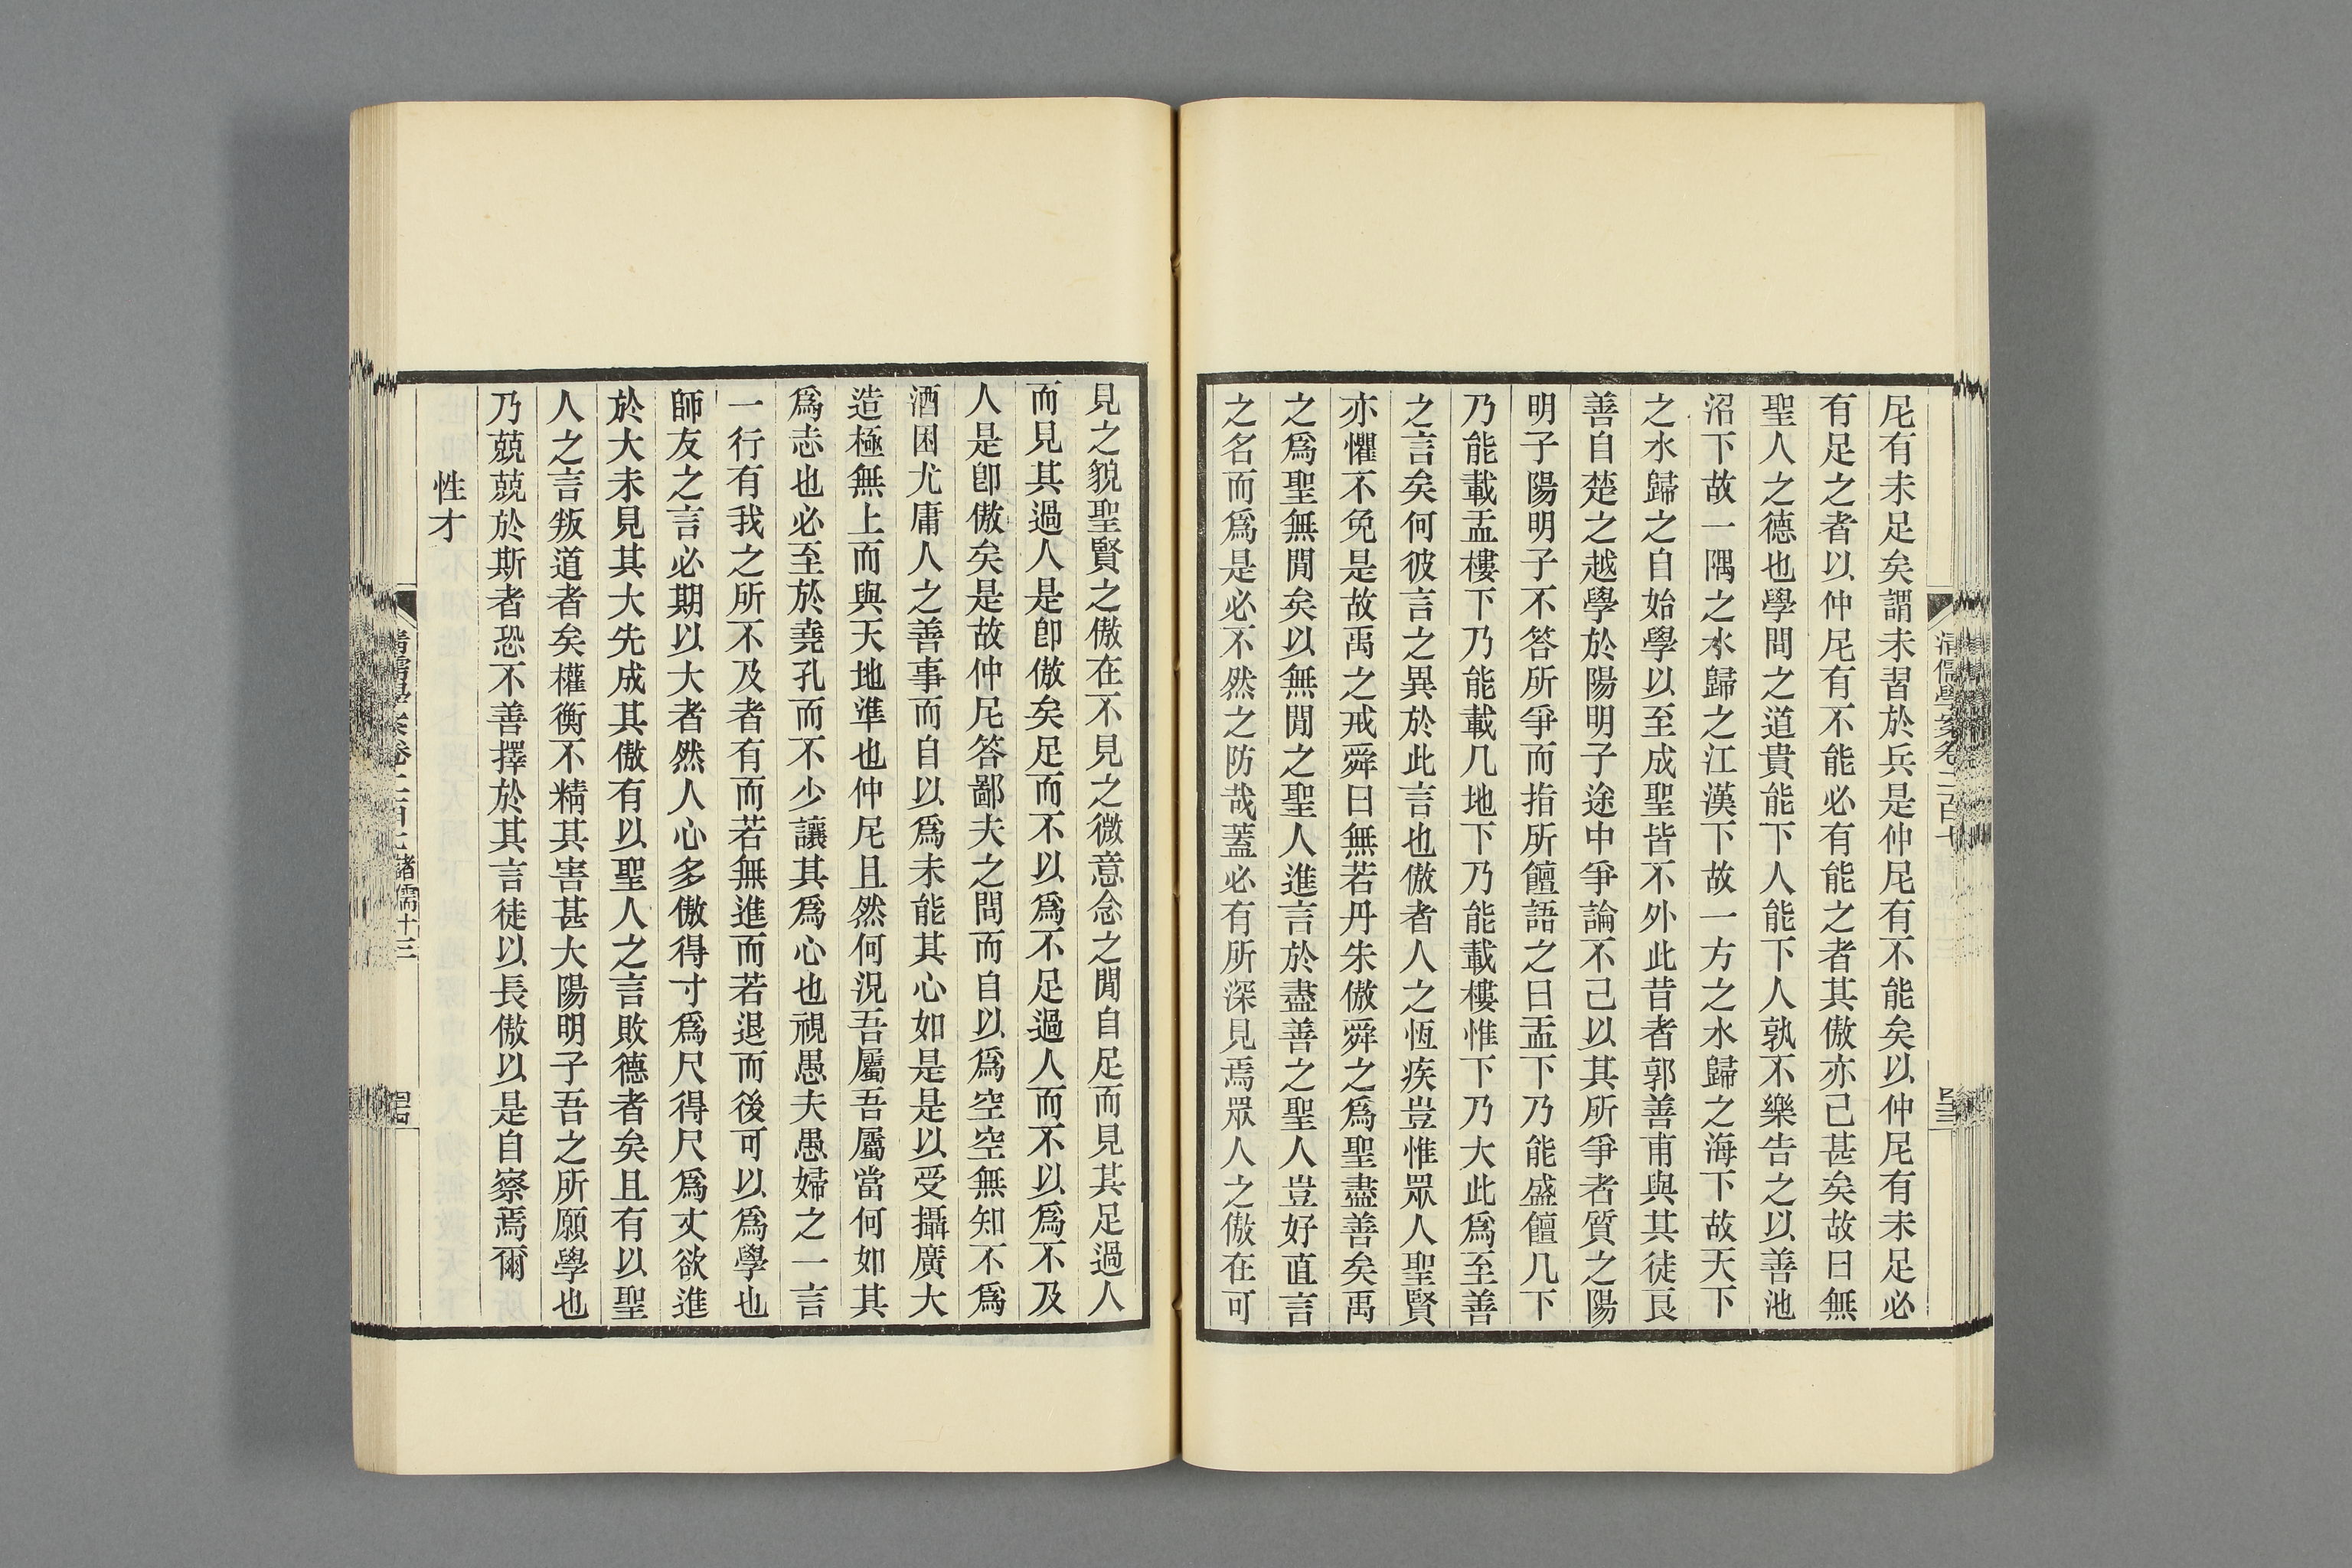 尼有未足矣謂未習於兵是仲尼有不能矣以仲尼有未足必
有足之者以仲尼有不能必有能之者其傲亦已甚矣故曰無
聖人之德也學問之道貴能下人能下人孰不樂告之以善池
沼下故一隅之水歸之江漢下故一方之水歸之海下故天下
之水歸之自始學以至成聖皆不外此昔者郭善甫與其徒良
善自楚之越學於陽明子途中爭論不已以其所爭者質之陽
明子陽明子不答所爭而指所饘語之曰盂下乃能盛饘几下
乃能載盂樓下乃能載几地下乃能載樓惟下乃大此爲至善
之言矣何彼言之異於此言也傲者人之恆疾豈惟眾人聖賢
亦懼不免是故禹之戒舜曰無若丹朱傲舜之爲聖盡善矣禹
之爲聖無閒矣以無閒之聖人進言於盡善之聖人豈好直言
之名而爲是必不然之防哉蓋必有所深見焉眾人之傲在可
見之貌聖賢之傲在不見之微意念之閒自足而見其足過人
而見其過人是卽傲矣足而不以爲不足過人而不以爲不及
人是卽傲矣是故仲尼答鄙夫之問而自以爲空空無知不爲
酒困尤庸人之善事而自以爲未能其心如是是以受攝廣大
造極無上而與天地準也仲尼且然何況吾屬吾屬當何如其
爲志也必至於堯孔而不少讓其爲心也視愚夫愚婦之一言
一行有我之所不及者有而若無進而若退而後可以爲學也
師友之言必期以大者然人心多傲得寸爲尺得尺爲丈欲進
於大未見其大先成其傲有以聖人之言敗德者矣且有以聖
人之言叛道者矣權衡不精其害甚大陽明子吾之所願學也
乃兢兢於斯者恐不善擇於其言徒以長傲以是自察焉爾
性才
清儒學案卷二百七
諸儒十三